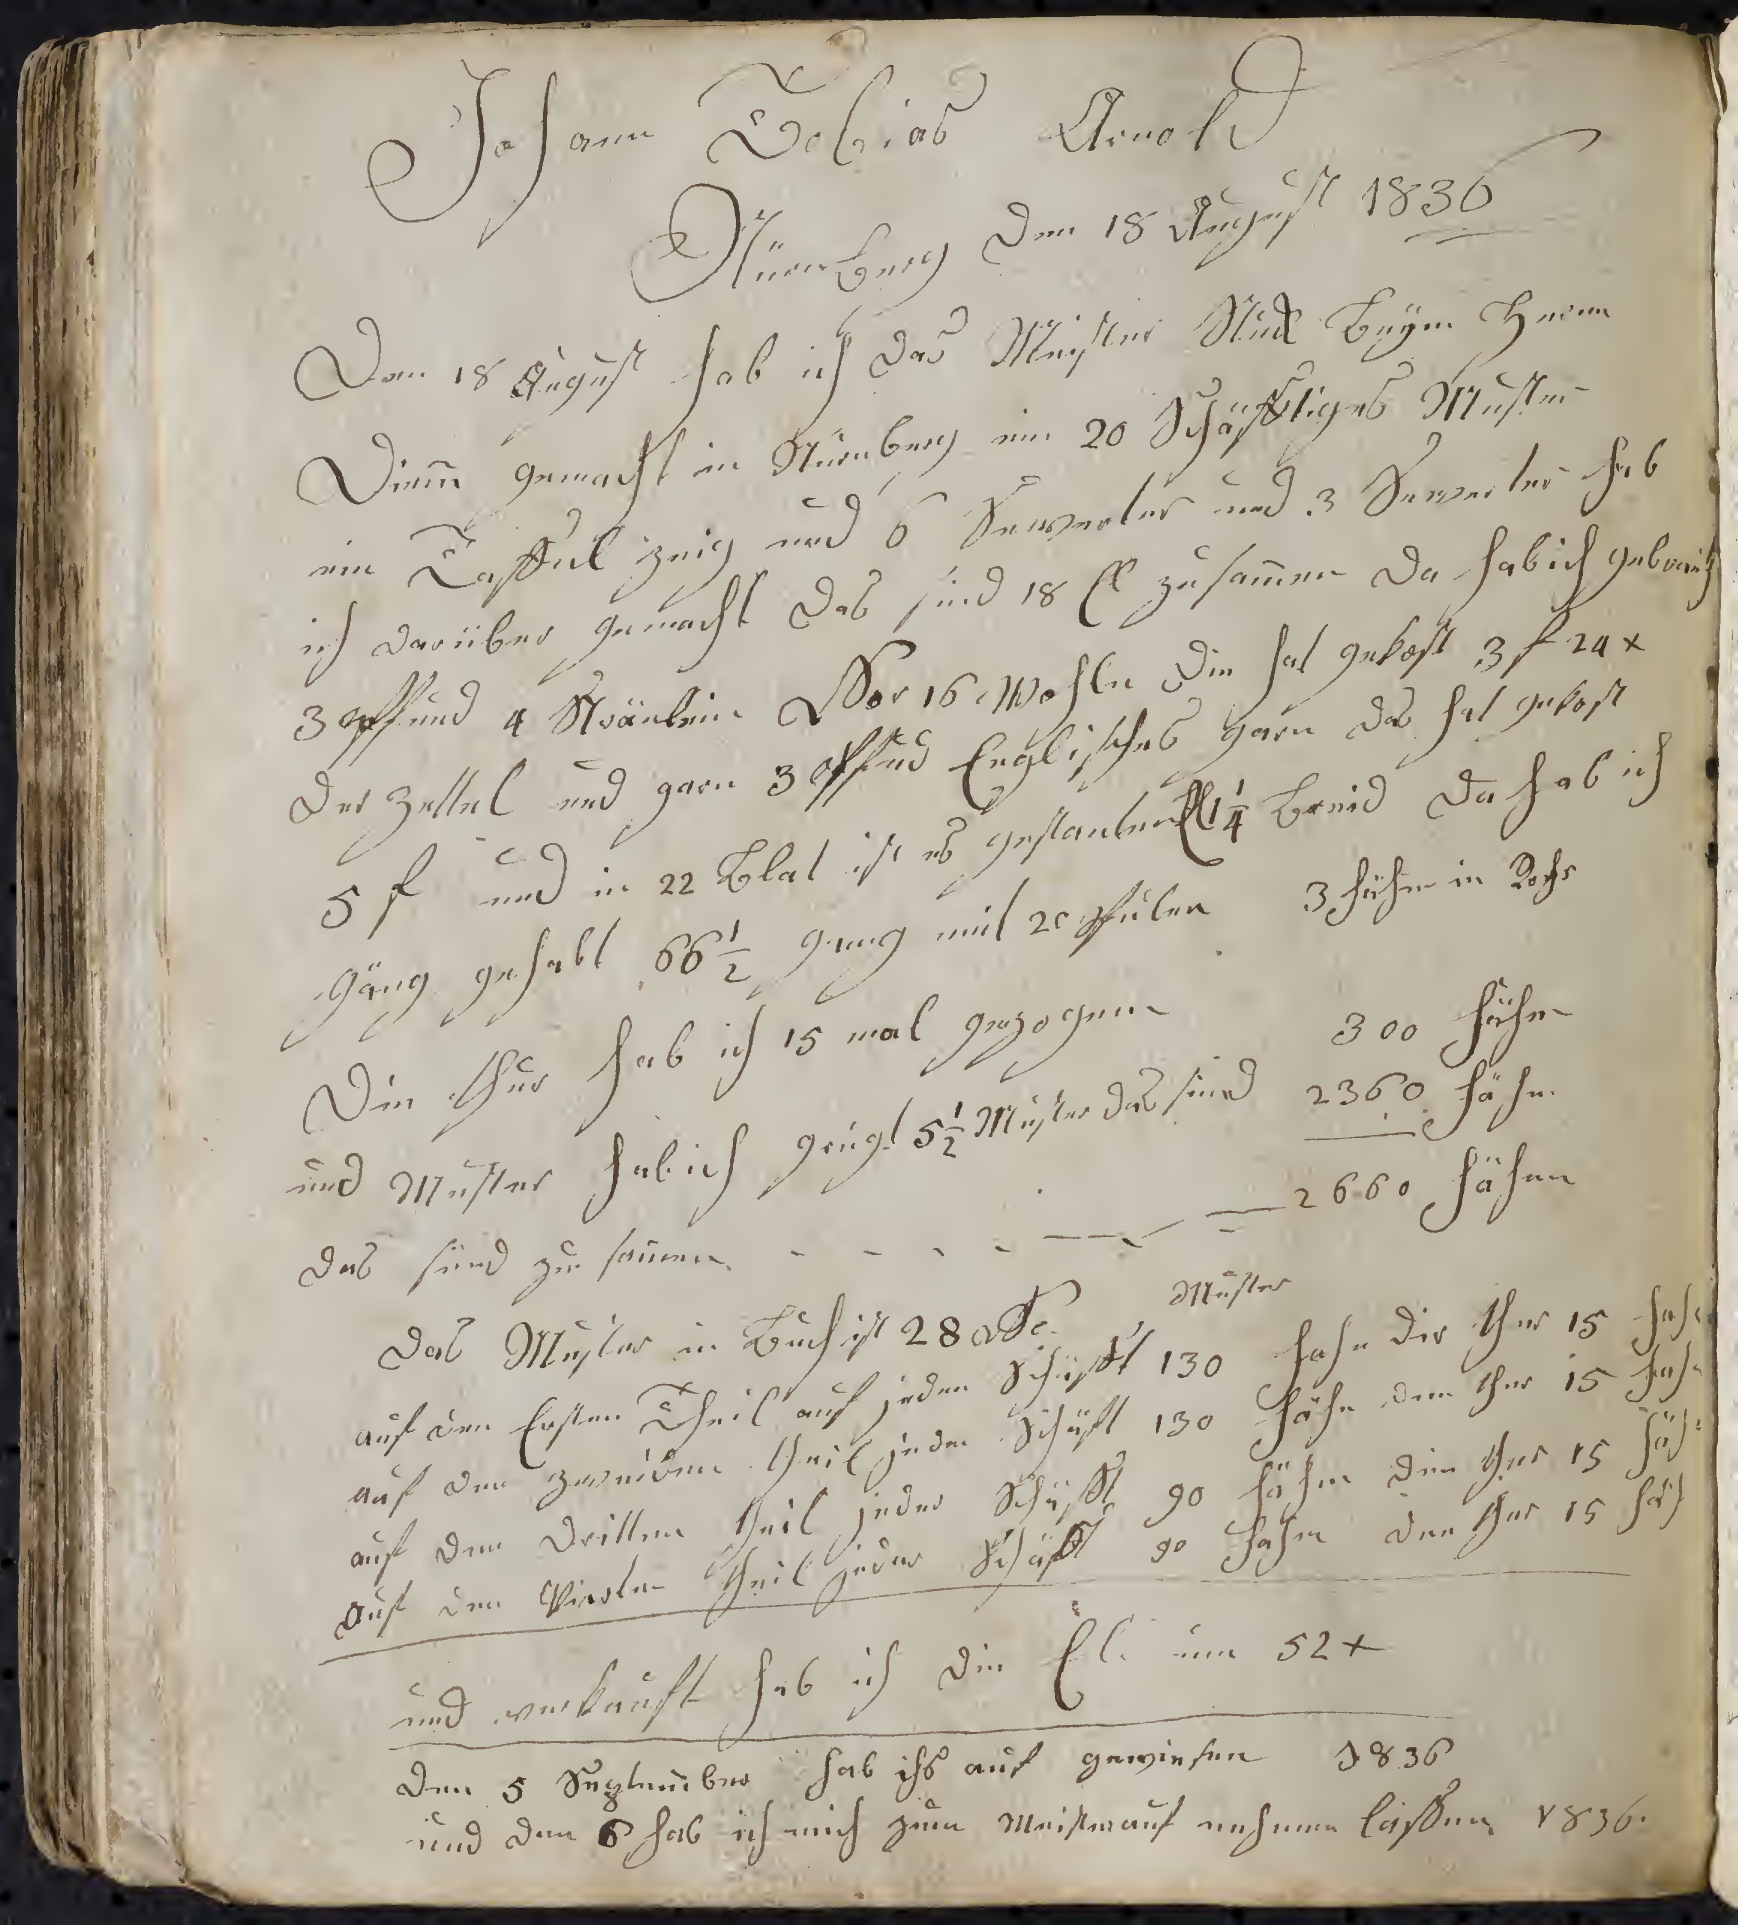 Johann Tobias Arnold
Nürnberg den 18 August 1836
Den 18 August hab ich das Meister Stück beÿm Herrn
Diem̄ gemacht in Nürnberg ein 20 Schäfftiges Muster
ein Taffel zeig und 6 Serwerter und 3 Serwerter hab
ich darüber gemacht das sind 18 El zusam̄en da hab ich gebraucht
3 Pffund 4 Stränlein Vor 16 Wohle die hat gekost 3 f 24 x
der Zettel und garn 3 Pffud Englisches garn das hat gekost
5 f und in 22 Blat ist es gestanten El 1 1/4 breid da hab ich
gäng gehabt 66 1/2 gang mit 20 Spulen 3 fähn in Rohr
Die thur hab ich 15 mal gezogen 300 fähn
und Muster hab ich 5 1/2 Muster das sind 2360 fähn
das sind zu samen 2660 fähen
das Muster in Buch ist 28 No. Muster
auf den Ersten Theil auf jeden Schäfft 130 fahn die thur 15 fahn
auf den zweiden theil jeden Schäft 130 fähn den thur 15 fahn
auf den dritten theil jeder Schäfft 90 fähen die thur 15 fäh
auf den Vierten theil jeder Schäfft 90 fahen den thur 15 fäh
und verkauft hab ich die El. um 52 x
den 5 September hab ichs auf gewiesen 1836
und den 6 hab ich mich zum Meister auf nehmen lassen 1836.